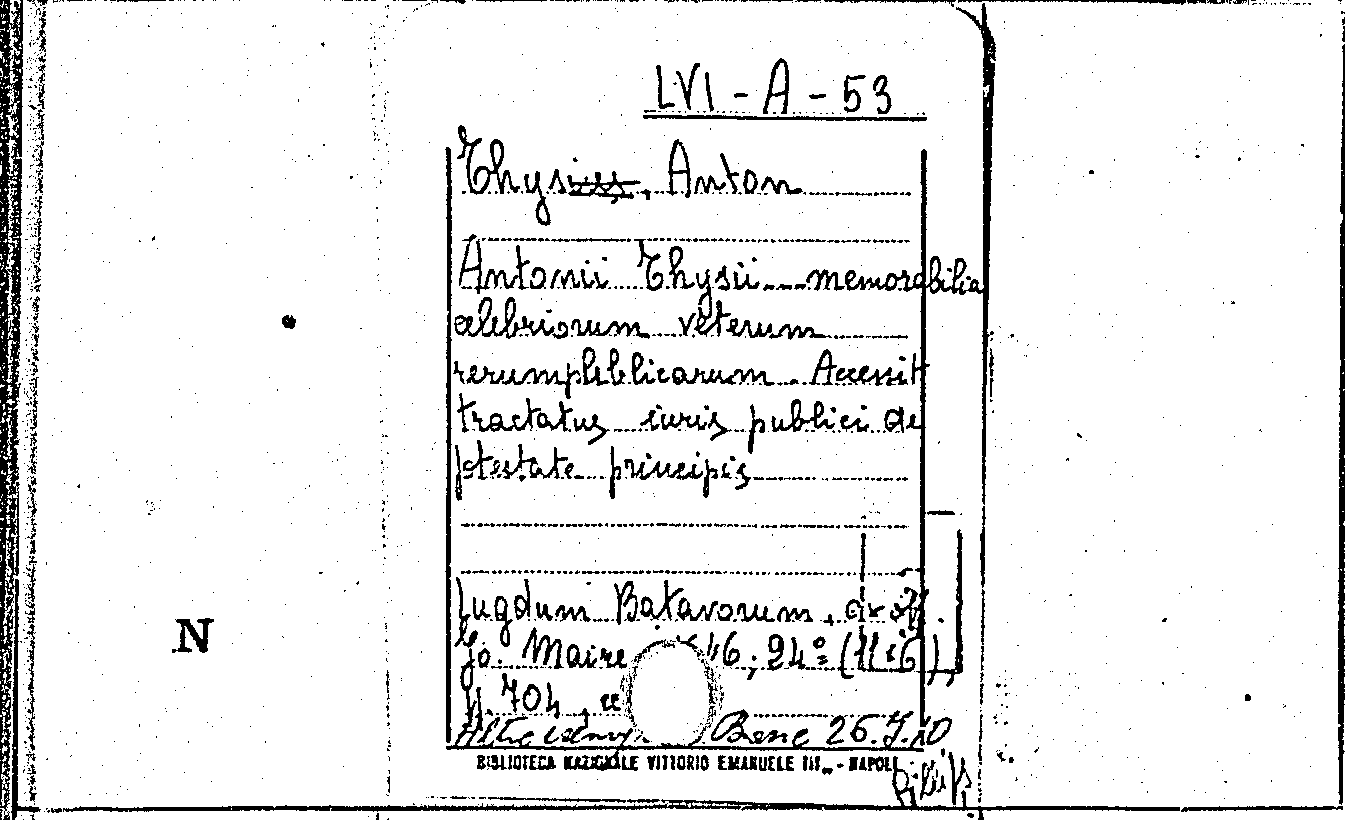 LVI - A - 53
Thysius, Anton
Antonii Thysii --- memorabilia
celebriorum veterum
rerumpublicarum. Accessit
tractatus iuris publici de
potestate principis
Lugdum Batavorum, ex off.
Jo. Maire 46, 24º (11x6),
p. 704,
Altro esemp. Banc 26.J.10
N
BIBLIOTECA NAZIONALE VITTORIO EMANUELE III - NAPOLI